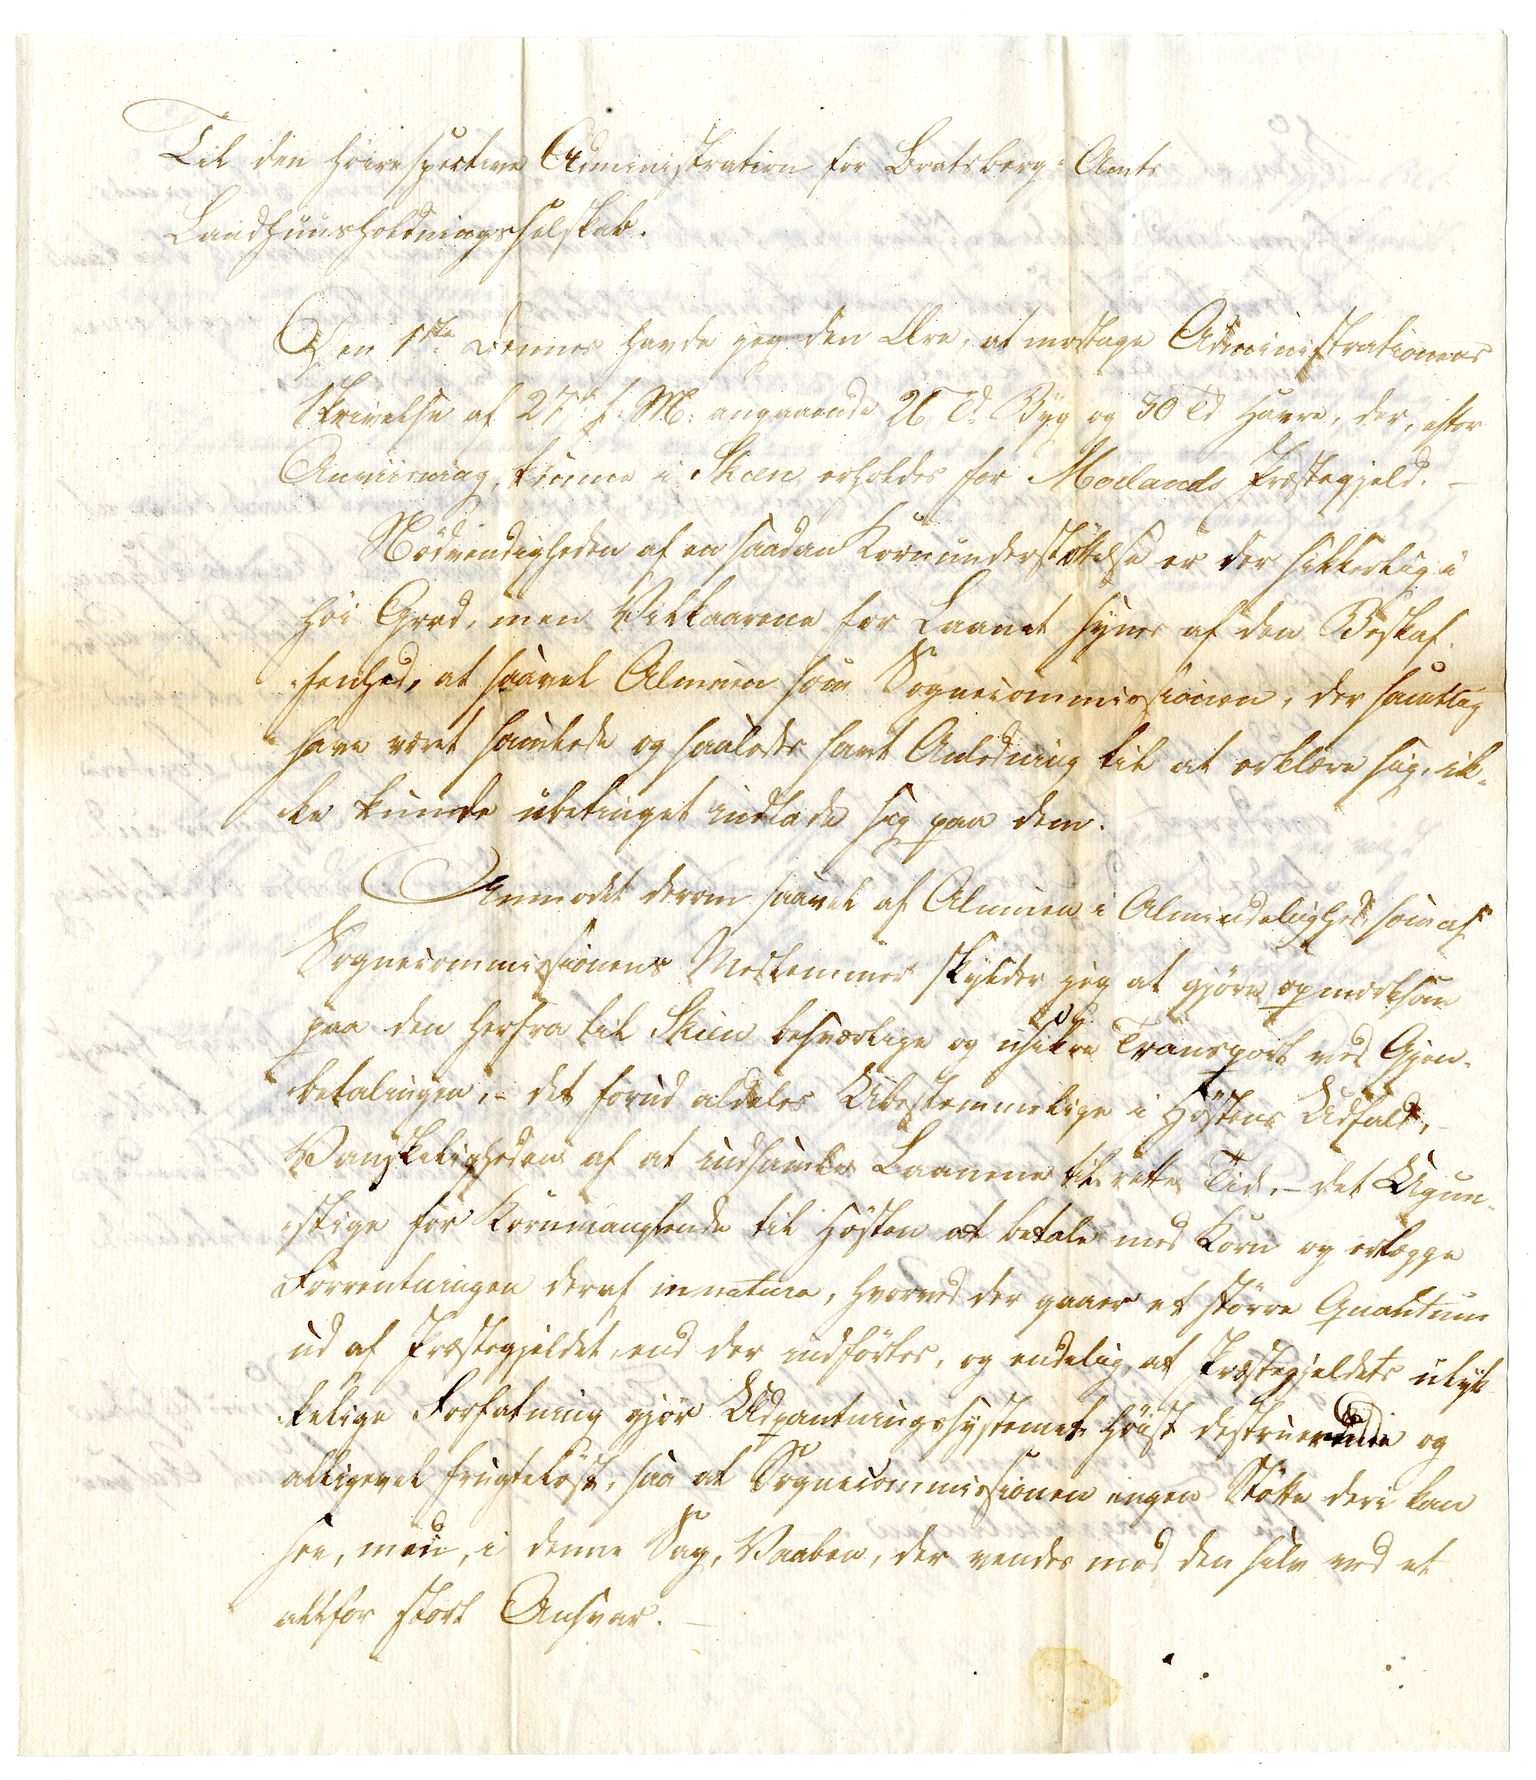 Til den höirespective Administration for Bratsberg Amts
Landhuusholdningsselskab.
Den 1ste dennes havde jeg den Ære, at modtage Administrationens
Skrivelse af 27de f: M: angaaende 26 Td. Byg og 30 Td Havre, der, efter
Anviisning, kunne i Skien erholdes for Moelands Præstegjeld. –
Nödvendigheden af en saadan Kornunderstöttelse er der sikkerlig i
höi Grad, men Vilkaarene for Laanet synes af den Beskaf-
fenhed, at saavel Almuen som Sognecommissionen, der samtlig
have været samlede og saaledes havt Anledning til at erklære sig, ik-
ke kunde ubetinget indlade sig paa dem.
Anmodet derom saavel af Almuen i Almindelighed, som af
Sognecommissionens Medlemmer skylder jeg at gjöre opmærksom
paa den herfra til Skien besværlige og usikre Transport ved Gjen-
betalingen, – det forud aldeles Ubestemmelige i Höstens Udfald, –
Vanskeligheden af at indsamle Laanene til rette Tid, – det Ugun-
stige for Kornmanglende til Hösten at betale med Korn og erlægge
Forrentningen deraf in natura, hvorved der gaaer et större Quantum
ud af Præstegjeldet, end der indförtes, og endelig, at Præstegjeldets ulyk-
kelige Forfatning gjör Udpantningssystemet höist destruerende og
alligevel frugteslöst, saa at Sognecommissionen ingen Stötte deri kan
see, men, i denne Sag, Vaaben, der vendes mod den selv ved et
altfor stort Ansvar. –